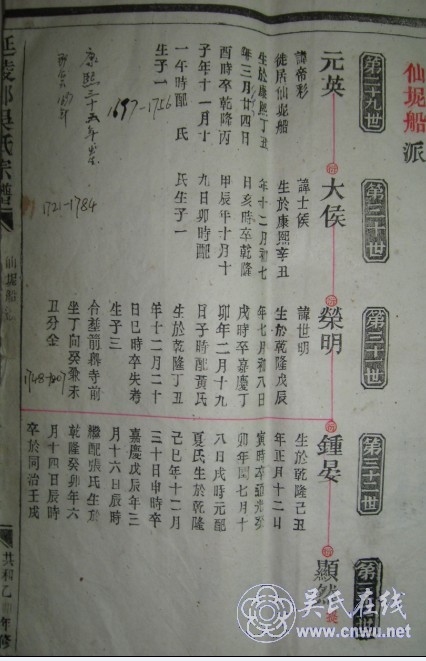 仙坭船派
第二十九世
元英
諱帝彩
徙居仙坭船
生於康熙丁丑
年三月廿四日
酉時卒乾隆丙
子年十一月十
一午時配 氏
生子一
1697-1756
康熙三十五年生
第三十世
大侯
諱士侯
生於康熙辛丑
年十二月初七
日亥時卒乾隆
甲辰年十月十
九日卯時配
氏生子一
1721-1784
第三十一世
榮明
諱世明
生於乾隆戊辰
年七月初八日
戌時卒嘉慶丁
卯年二月十九
日子時配黃氏
生於乾隆丁丑
年十二月二十
日巳時卒失考
生子三
台基前寺前
坐丁向癸兼未
丑分金
1748-1807
第三十二世
鍾晏
生於乾隆己丑
年正月十二日
寅時卒道光癸
卯年閏七月十
八日戌時元配
夏氏生於乾隆
己巳年十二月
三十日申時卒
嘉慶戊辰年三
月十六日辰時
繼配張氏生於
乾隆癸卯年六
月十四日辰時
卒於同治壬戌
第三十三世
顯然
延陵郡吳氏宗譜
仙坭船
共和乙 年修
吴氏在线
www.cnwu.net